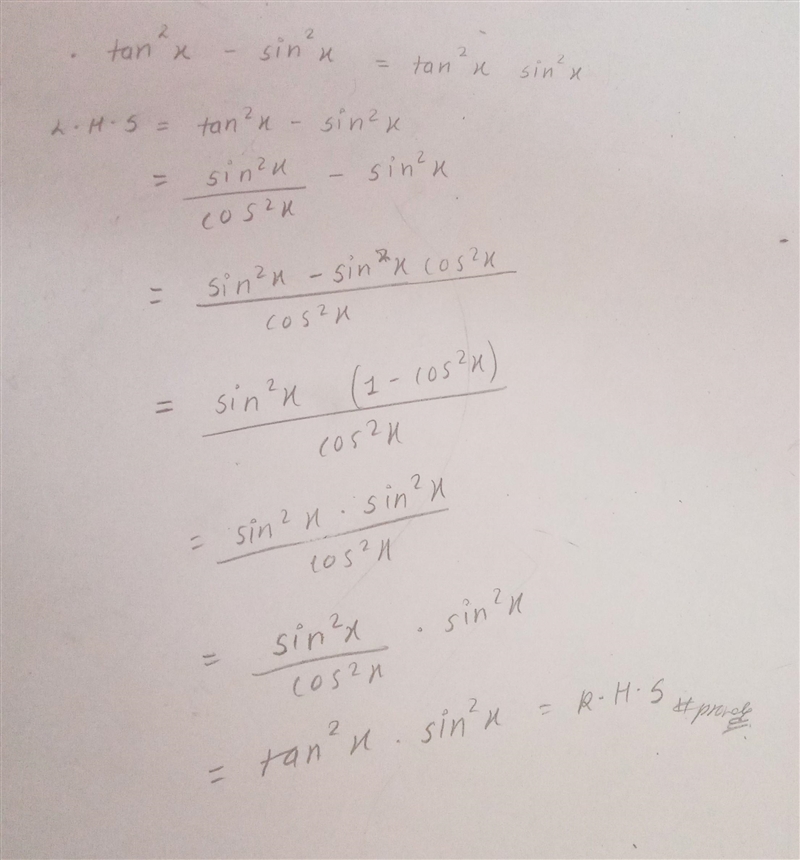 tan²x - sin²x = tan²x sin²x
L.H.S = tan²x - sin²x
= sin²x/cos²x - sin²x
= sin²x - sin²x cos²x/cos²x
= sin²x (1 - cos²x)/cos²x
= sin²x . sin²x/cos²x
= sin²x/cos²x . sin²x
= tan²x . sin²x = R.H.S